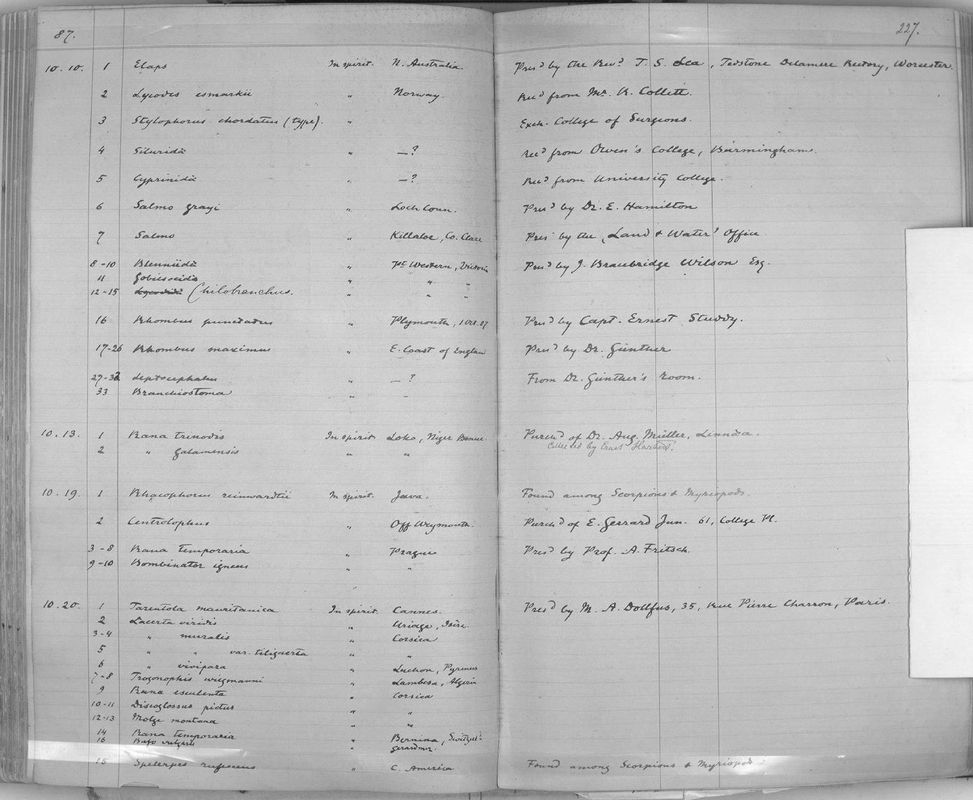 87.
227.
10.10. 1 Elaps In spirit. N. Australia Pres.d by the Rev.d T. S. Lea, Tedstone Delamere Rectory, Worcester.
2 Lycodes esmarkii " Norway. Rec.d from Mr. R. Collett.
3 Stylophorus chordatus (type). " Exch. College of Surgeons.
4 Siluridæ " —? Rec.d from Owen's College, Birmingham.
5 Cyprinidæ " —? Rec.d from University College.
6 Salmo grayi " Loch Conn. Pres.d by Dr. E. Hamilton
7 Salmo " Killaloe, Co. Clare Pres.d by the 'Land & Water' Office
8-10 Blenniidæ " Pt. Western, Victoria Pres.d by J. Bracebridge Wilson Esq.
11 Gobiesocidæ " " "
12-15 Chilobranchus. " " "
16 Rhombus punctatus " Plymouth, 1 Oct. 87 Pres.d by Capt. Ernest Studdy.
17-26 Rhombus maximus " E. Coast of England Pres.d by Dr. Günther
27-32 Leptocephalus " —? From Dr. Günther's Room.
33 Branchiostoma " –
10.13. 1 Rana trinodis In spirit. Loko, Niger Benue. Purch.d of Dr. Aug. Müller, Linnæa.
2 " galamensis " " Collected by Ernst Hartert.
10.19. 1 Rhacophorus reinwardtii In spirit. Java. Found among Scorpions & Myriopods.
2 Centrolophus " Off Weymouth. Purch.d of E. Gerrard Jun. 61, College Pl.
3-8 Rana temporaria " Prague Pres.d by Prof. A. Fritsch.
9-10 Bombinator igneus " "
10.20. 1 Tarentola mauritanica In spirit. Cannes. Pres.d by M. A. Dollfus, 35, Rue Pierre Charron, Paris.
2 Lacerta viridis " Uriage, Isère.
3-4 " muralis " Corsica
5 " " var. tiliguerta " "
6 " vivipara " Luchon, Pyrenees
7-8 Trogonophis wiegmanni " Lambesa, Algeria
9 Rana esculenta " Corsica
10-11 Discoglossus pictus " "
12-13 Molge montana " "
14 Rana temporaria " Bernina, Switzel.d
16 Bufo vulgaris " Gerardmer.
15 Spelerpes rufescens " C. America Found among Scorpions & Myriopods.